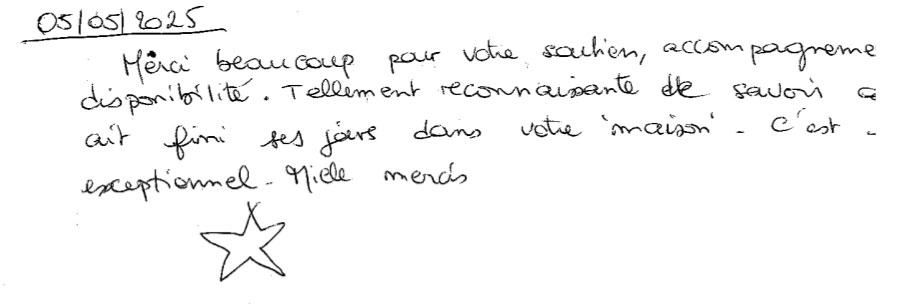 05/05/2025
Merci beaucoup pour votre soutien, accompagneme
disponibilité. Tellement reconnaissante de savoir
ait fini ses jours dans votre 'maison'. C'est
exceptionnel. Mille mercis